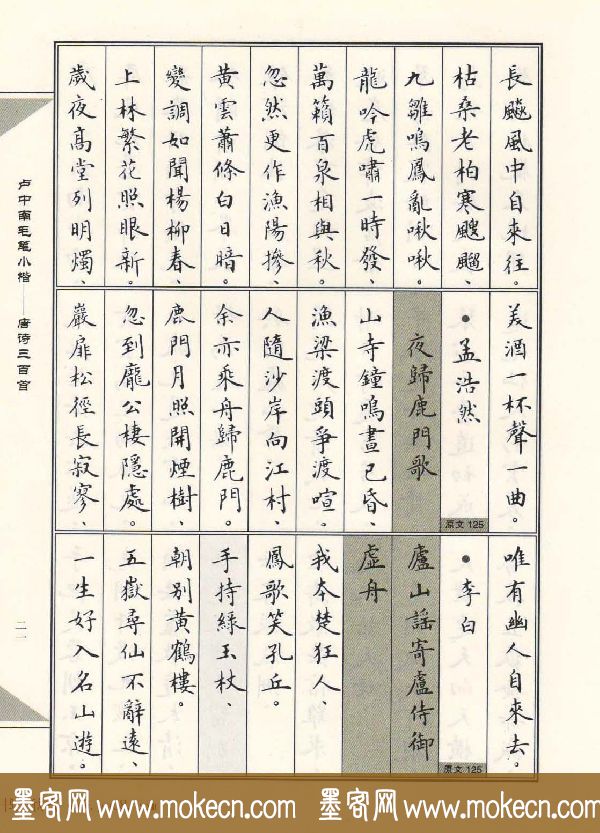 長飈風中自來往。
枯桑老柏寒颼飀、
九雛鳴鳳亂啾啾。
龍吟虎嘯一時發、
萬籟百泉相與秋。
忽然更作漁陽摻、
黃雲蕭條白日暗。
變調如聞楊柳春、
上林繁花照眼新。
歲夜高堂列明燭、
美酒一杯聲一曲。
•孟浩然
原文125
夜歸鹿門歌
山寺鐘鳴晝已昏、
漁梁渡頭爭渡喧。
人隨沙岸向江村、
余亦乘舟歸鹿門。
鹿門月照開煙樹、
忽到龐公棲隱處。
巖扉松徑長寂寥、
唯有幽人自來去。
•李白
原文125
廬山謠寄廬侍御
虛舟
我本楚狂人、
鳳歌笑孔丘。
手持綠玉杖、
朝別黃鶴樓。
五嶽尋仙不辭遠、
一生好入名山遊。
卢中南毛笔小楷——唐诗三百首
二一
墨客网 www.mokecn.com 墨客网 www.mokecn.com